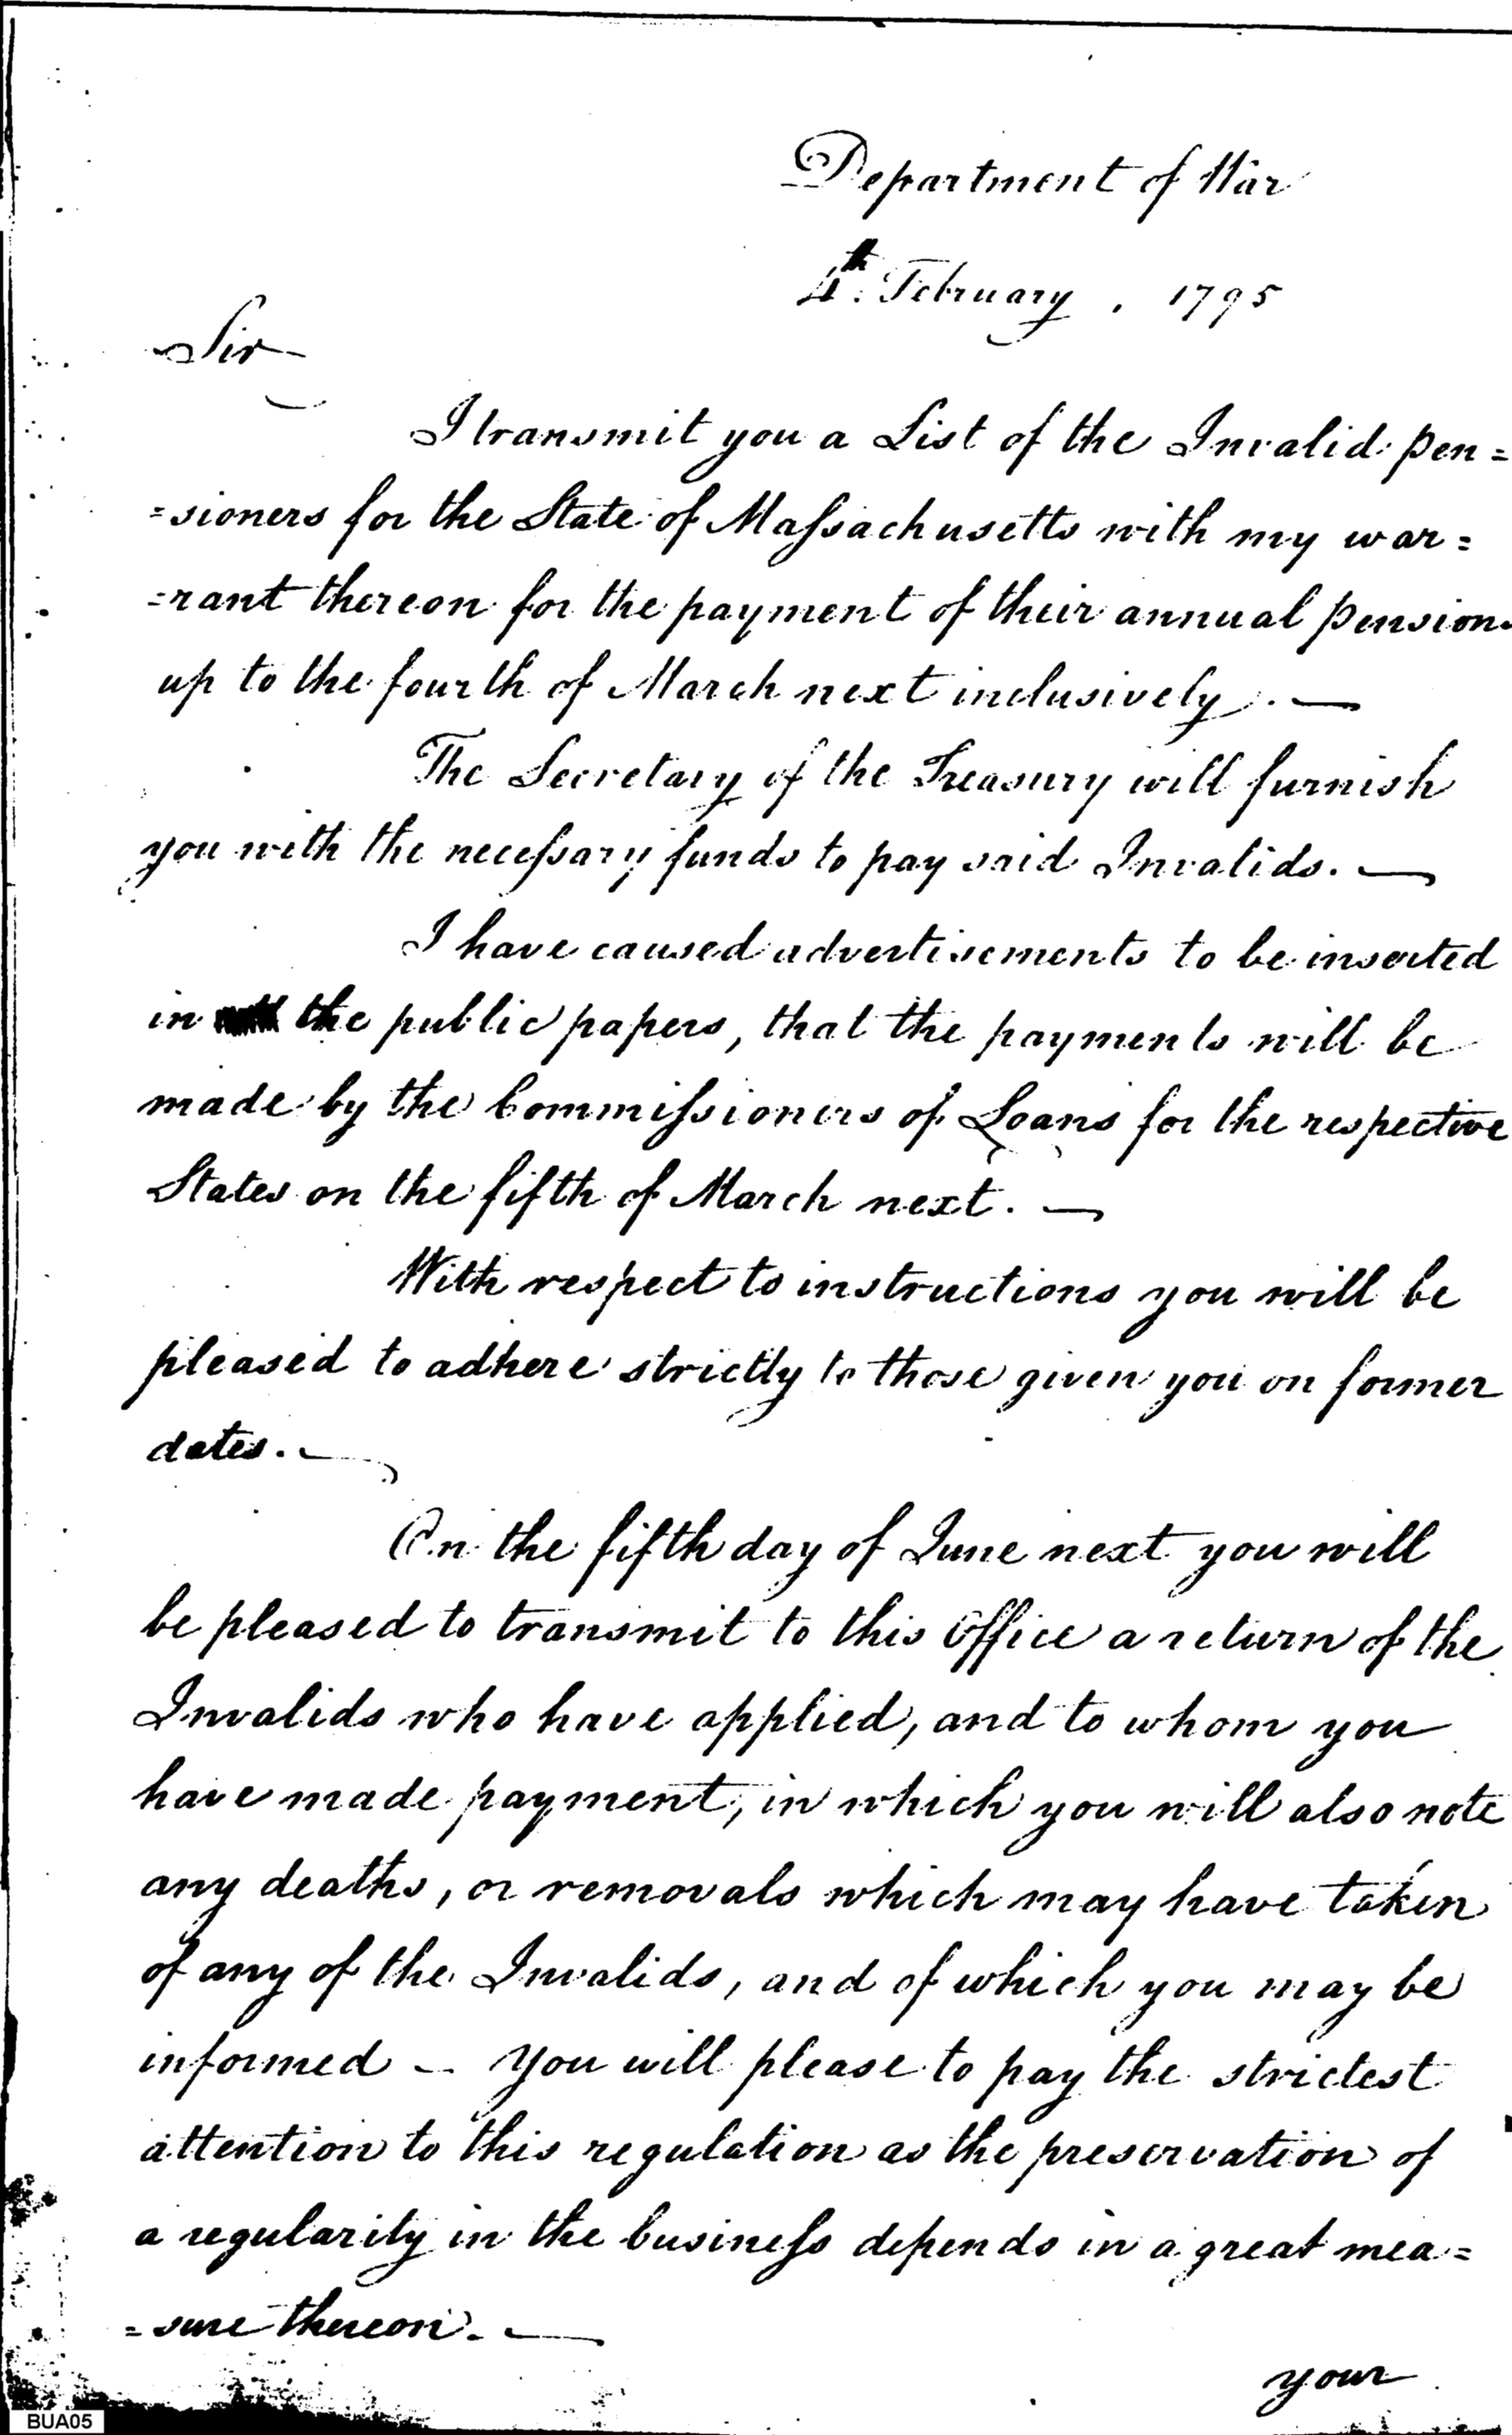 Department of War
4th. February, 1795
Sir
I transmit you a List of the Invalid pen=
=sioners for the State of Massachusetts with my war=
=rant thereon for the payment of their annual pensions
up to the fourth of March next inclusively. —
The Secretary of the Treasury will furnish
you with the necessary funds to pay said Invalids. —
I have caused advertisements to be inserted
in the public papers, that the payments will be
made by the Commissioners of Loans for the respective
States on the fifth of March next. —
With respect to instructions you will be
pleased to adhere strictly to those given you on former
dates. —
On the fifth day of June next you will
be pleased to transmit to this Office a return of the
Invalids who have applied, and to whom you
have made payment, in which you will also note
any deaths, or removals which may have taken
of any of the Invalids, and of which you may be
informed — You will please to pay the strictest
attention to this regulation as the preservation of
a regularity in the business depends in a great mea=
=sure thereon. —
your
BUA05